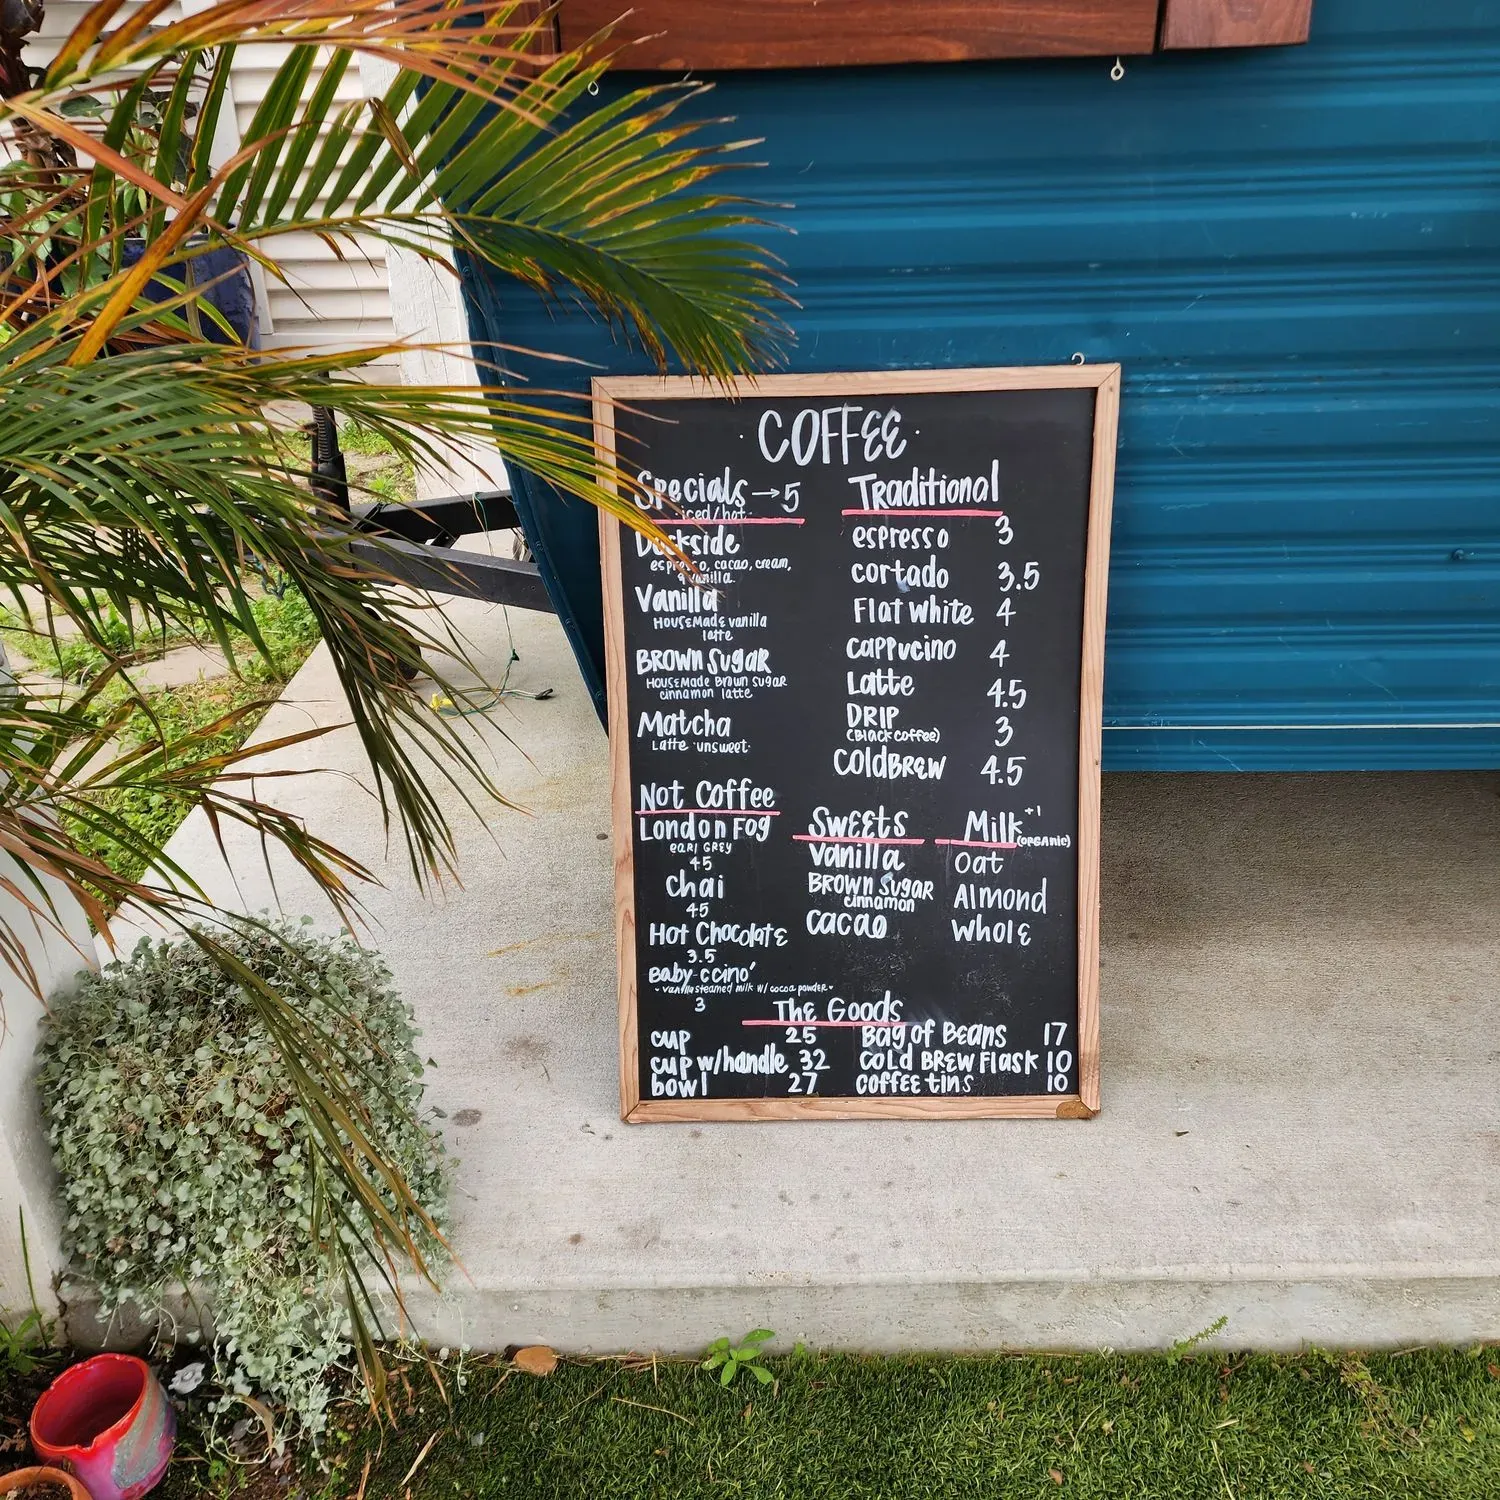 · COFFEE ·
Specials → 5
iced/hot
Dockside
espresso, cacao, cream,
& vanilla
Vanilla
HOUSEMADE vanilla
latte
BROWN SUGAR
HOUSEMADE BROWN SUGAR
cinnamon latte
Matcha
Latte ·unsweet·
Not Coffee
London Fog
EARL GREY
45
Chai
45
Hot Chocolate
3.5
Baby-ccino'
- vanilla steamed milk w/ cocoa powder -
3
Traditional
espresso 3
cortado 3.5
Flat White 4
cappucino 4
Latte 4.5
DRIP 3
(Black coffee)
COLDBREW 4.5
Sweets
Vanilla
BROWN SUGAR
cinnamon
cacao
Milk +1
(ORGANIC)
Oat
Almond
Whole
The Goods
cup 25
cup w/handle 32
bowl 27
Bag of Beans 17
COLD BREW Flask 10
coffee tins 10